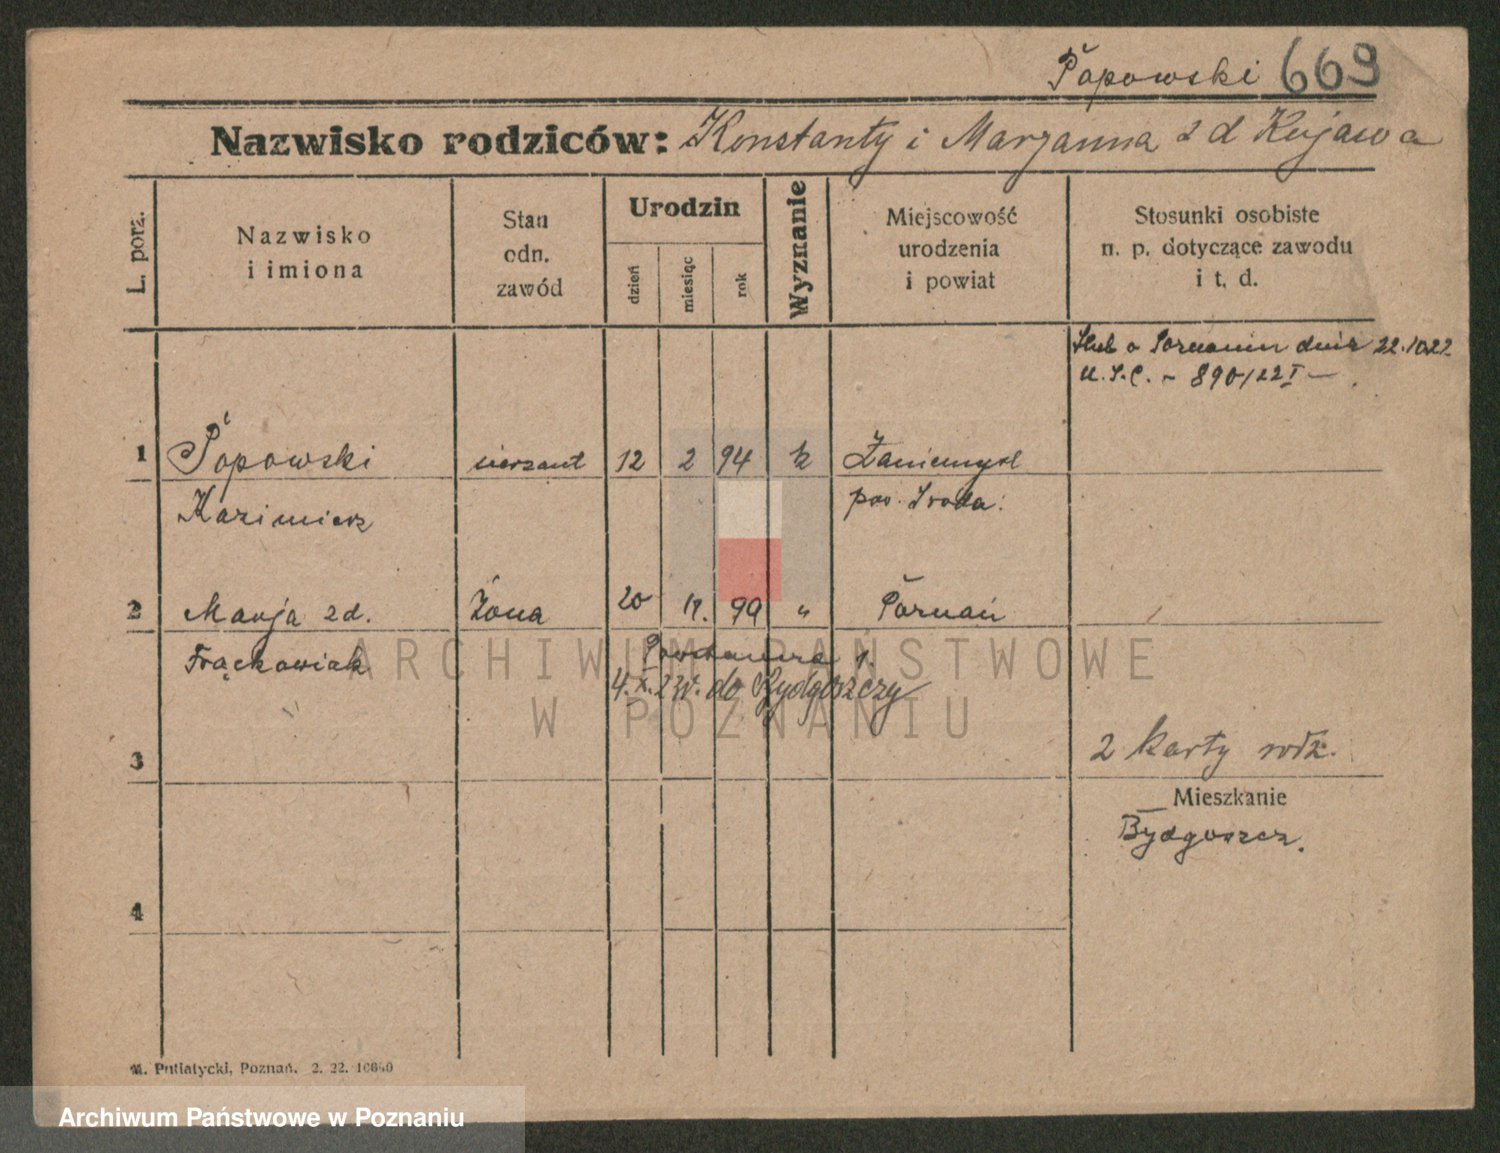 Popowski 669
Nazwisko rodziców: Konstanty i Marzanna z d Kujawa
L. porz.
Nazwisko
i imiona
Stan
odn.
zawód
Urodzin
dzień
miesiąc
rok
Wyznanie
Miejscowość
urodzenia
i powiat
Stosunki osobiste
n. p. dotyczące zawodu
i t. d.
Ślub w Poznaniu dnia 22.10.22
U.S.C. - 890/22 I -
1 Popowski sierżant 12 2 94 k Zaniemyśl
Kazimierz pow. Środa.
2 Marja z d. Żona 20 11. 99 „ Poznań
Frąckowiak
4.X.23r. do Bydgoszczy
ARCHIWUM PAŃSTWOWE
W POZNANIU
3
2 karty rodz.
Mieszkanie
Bydgoszcz.
4
M. Putiatycki, Poznań. 2. 22. 10640
Archiwum Państwowe w Poznaniu